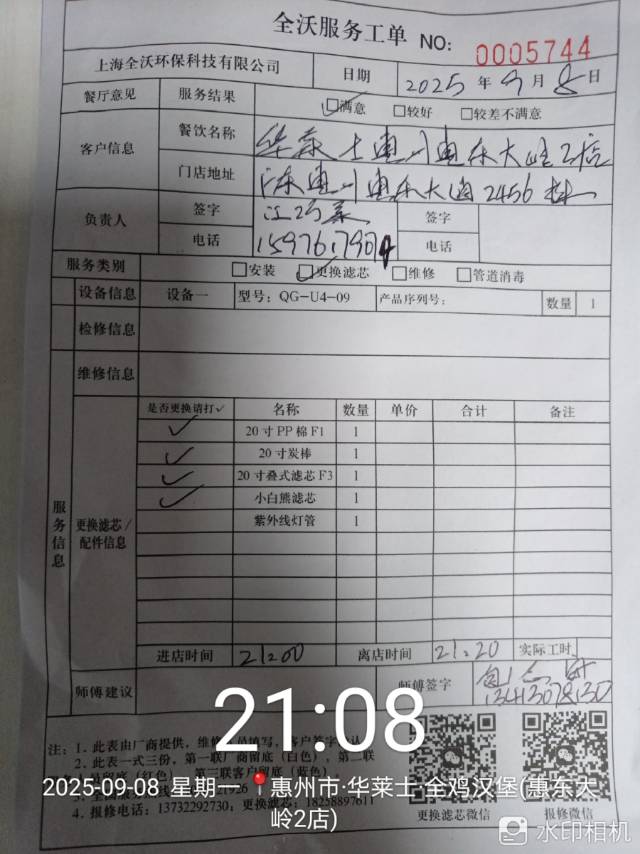 全沃服务工单 NO: 0005744
上海全沃环保科技有限公司 日期 2025年9月8日
餐厅意见 服务结果 ☑满意 □较好 □较差不满意
客户信息 餐饮名称 华莱士惠州惠东大岭2店
门店地址 惠州惠东大道2456
负责人 签字 签字
电话 电话
服务类别 □安装 ☑更换滤芯 □维修 □管道消毒
设备信息 设备一 型号: QG-U4-09 产品序列号: 数量 1
检修信息
维修信息
服务信息
更换滤芯/配件信息
是否更换请打✓ 名称 数量 单价 合计 备注
✓ 20寸PP棉F1 1
✓ 20寸炭棒 1
✓ 20寸叠式滤芯F3 1
✓ 小白熊滤芯 1
紫外线灯管 1
进店时间 21:00 离店时间 21:20 实际工时
师傅建议 师傅签字
13413078130
21:08
注: 1. 此表由厂商提供, 维修
2. 此表一式三份, 第一联厂商留底(白色), 第二联
留底(红色) 第三联客户留底(蓝色)
4. 报修电话: 13732292730; 更换滤芯: 18258897611
更换滤芯微信 报修微信
2025-09-08 星期一 惠州市·华莱士·全鸡汉堡(惠东大
岭2店)
水印相机